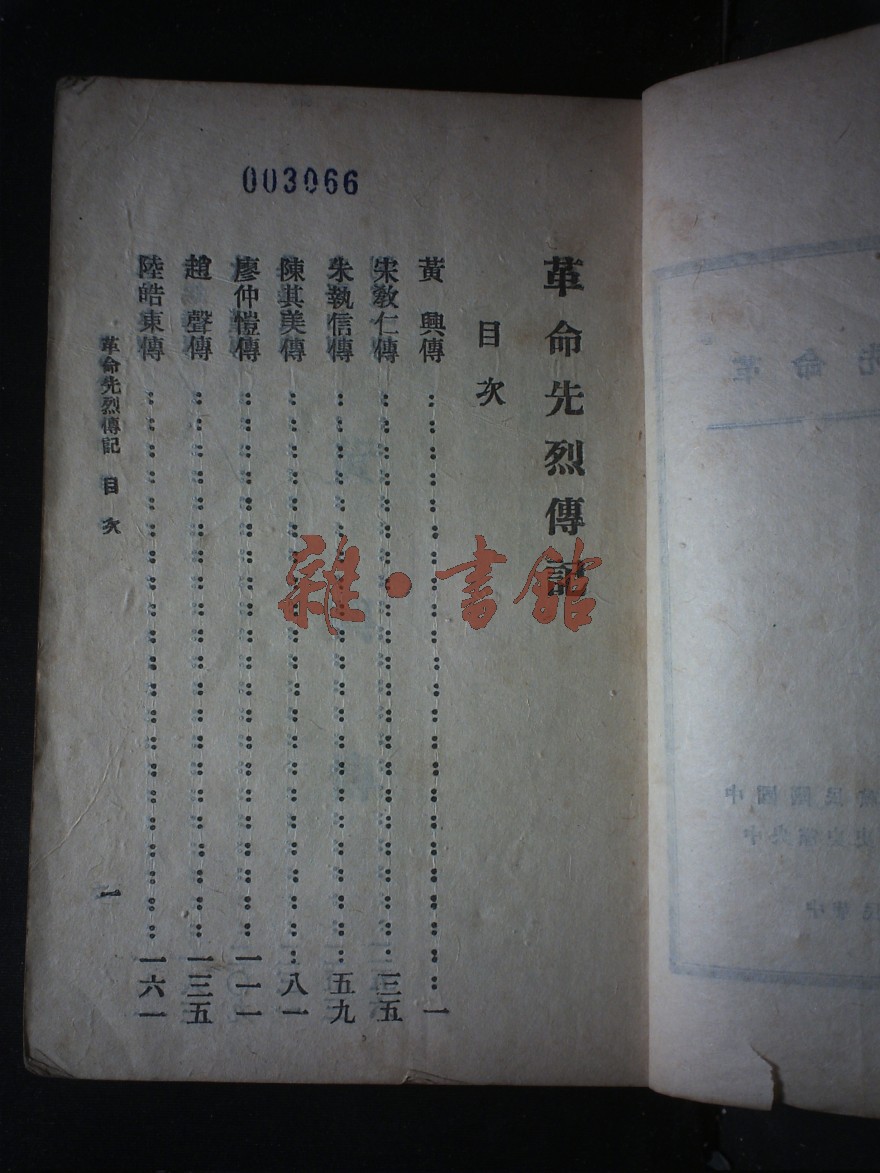 003066
革命先烈傳記
目次
黃興傳 一
宋敎仁傳 三五
朱執信傳 五九
陳其美傳 八一
廖仲愷傳 一一一
趙聲傳 一三五
陸皓東傳 一六一
革命先烈傳記 目次
一
雜·書館